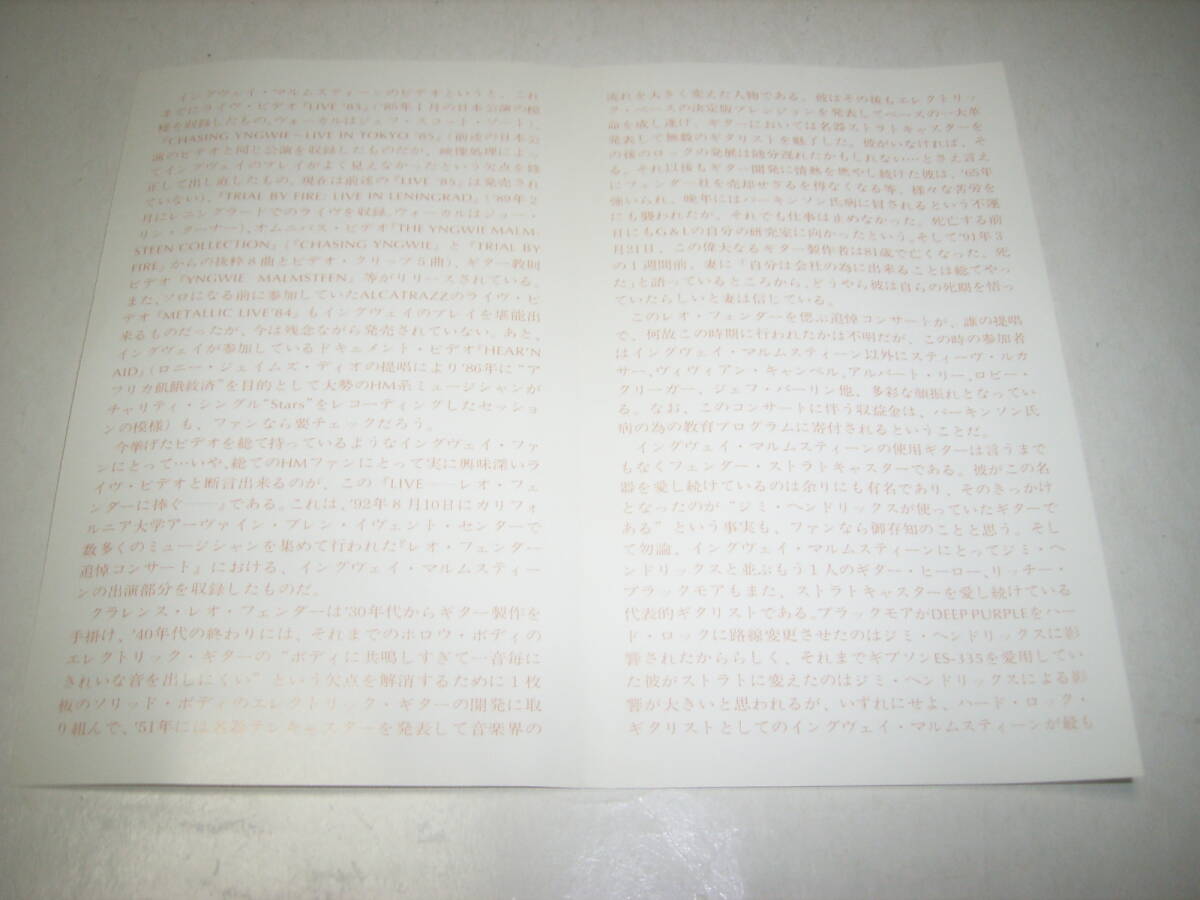 イングヴェイ・マルムスティーンのビデオというと、これ
までにライヴ・ビデオ『LIVE '85』('85年1月の日本公演の模
様を収録したもの。ヴォーカルはジェフ・スコット・ソート)、
『CHASING YNGWIE–LIVE IN TOKYO '85』(前述の日本公
演のビデオと同じ公演を収録したものだが、映像処理によっ
てイングヴェイのプレイがよく見えなかったという欠点を修
正して出し直したもの。現在は前述の『LIVE '85』は発売され
ていない)、『TRIAL BY FIRE: LIVE IN LENINGRAD』('89年2
月にレニングラードでのライヴを収録。ヴォーカルはジョー・
リン・ターナー)、オムニバス・ビデオ『THE YNGWIE MALM-
STEEN COLLECTION』(『CHASING YNGWIE』と『TRIAL BY
FIRE』からの抜粋8曲とビデオ・クリップ5曲)、ギター教則
ビデオ『YNGWIE MALMSTEEN』等がリリースされている。
また、ソロになる前に参加していたALCATRAZZのライヴ・ビ
デオ『METALLIC LIVE'84』もイングヴェイのプレイを堪能出
来るものだったが、今は残念ながら発売されていない。あと、
イングヴェイが参加しているドキュメント・ビデオ『HEAR'N
AID』(ロニー・ジェイムズ・ディオの提唱により'86年に“ア
フリカ飢餓救済”を目的として大勢のHM系ミュージシャンが
チャリティ・シングル“Stars”をレコーディングしたセッショ
ンの模様)も、ファンなら要チェックだろう。
今挙げたビデオを総て持っているようなイングヴェイ・ファ
ンにとって…いや、総てのHMファンにとって実に興味深いラ
イヴ・ビデオと断言出来るのが、この『LIVE——レオ・フェ
ンダーに捧ぐ——』である。これは、'92年8月10日にカリフォ
ルニア大学アーヴァイン・ブレン・イヴェント・センターで
数多くのミュージシャンを集めて行われた『レオ・フェンダー
追悼コンサート』における、イングヴェイ・マルムスティー
ンの出演部分を収録したものだ。
クラレンス・レオ・フェンダーは'30年代からギター製作を
手掛け、'40年代の終わりには、それまでのホロウ・ボディの
エレクトリック・ギターの“ボディに共鳴しすぎて一音毎に
きれいな音を出しにくい”という欠点を解消するために1枚
板のソリッド・ボディのエレクトリック・ギターの開発に取
り組んで、'51年には名器テレキャスターを発表して音楽界の
流れを大きく変えた人物である。彼はその後もエレクトリッ
ク・ベースの決定版プレシジョンを発表してベースの一大革
命を成し遂げ、ギターにおいては名器ストラトキャスターを
発表して無数のギタリストを魅了した。彼がいなければ、そ
の後のロックの発展は随分遅れたかもしれない…とさえ言え
る。それ以後もギター開発に情熱を燃やし続けた彼は、'65年
にフェンダー社を売却せざるを得なくなる等、様々な苦労を
強いられ、晩年にはパーキンソン氏病に冒されるという不運
にも襲われたが、それでも仕事は止めなかった。死亡する前
日にもG&Lの自分の研究室に向かったという。そして'91年3
月21日、この偉大なるギター製作者は81歳で亡くなった。死
の1週間前、妻に「自分は会社の為に出来ることは総てやっ
た」と語っているところから、どうやら彼は自らの死期を悟っ
ていたらしいと妻は信じている。
このレオ・フェンダーを偲ぶ追悼コンサートが、誰の提唱
で、何故この時期に行われたかは不明だが、この時の参加者
はイングヴェイ・マルムスティーン以外にスティーヴ・ルカ
サー、ヴィヴィアン・キャンベル、アルバート・リー、ロビー・
クリーガー、ジェフ・バーリン他、多彩な顔振れとなってい
る。なお、このコンサートに伴う収益金は、パーキンソン氏
病の為の教育プログラムに寄付されるということだ。
イングヴェイ・マルムスティーンの使用ギターは言うまで
もなくフェンダー・ストラトキャスターである。彼がこの名
器を愛し続けているのは余りにも有名であり、そのきっかけ
となったのが“ジミ・ヘンドリックスが使っていたギターで
ある”という事実も、ファンなら御存知のことと思う。そし
て勿論、イングヴェイ・マルムスティーンにとってジミ・ヘ
ンドリックスと並ぶもう1人のギター・ヒーロー、リッチー・
ブラックモアもまた、ストラトキャスターを愛し続けている
代表的ギタリストである。ブラックモアがDEEP PURPLEをハー
ド・ロックに路線変更させたのはジミ・ヘンドリックスに影
響されたかららしく、それまでギブソンES-335を愛用してい
た彼がストラトに変えたのはジミ・ヘンドリックスによる影
響が大きいと思われるが、いずれにせよ、ハード・ロック・
ギタリストとしてのイングヴェイ・マルムスティーンが最も